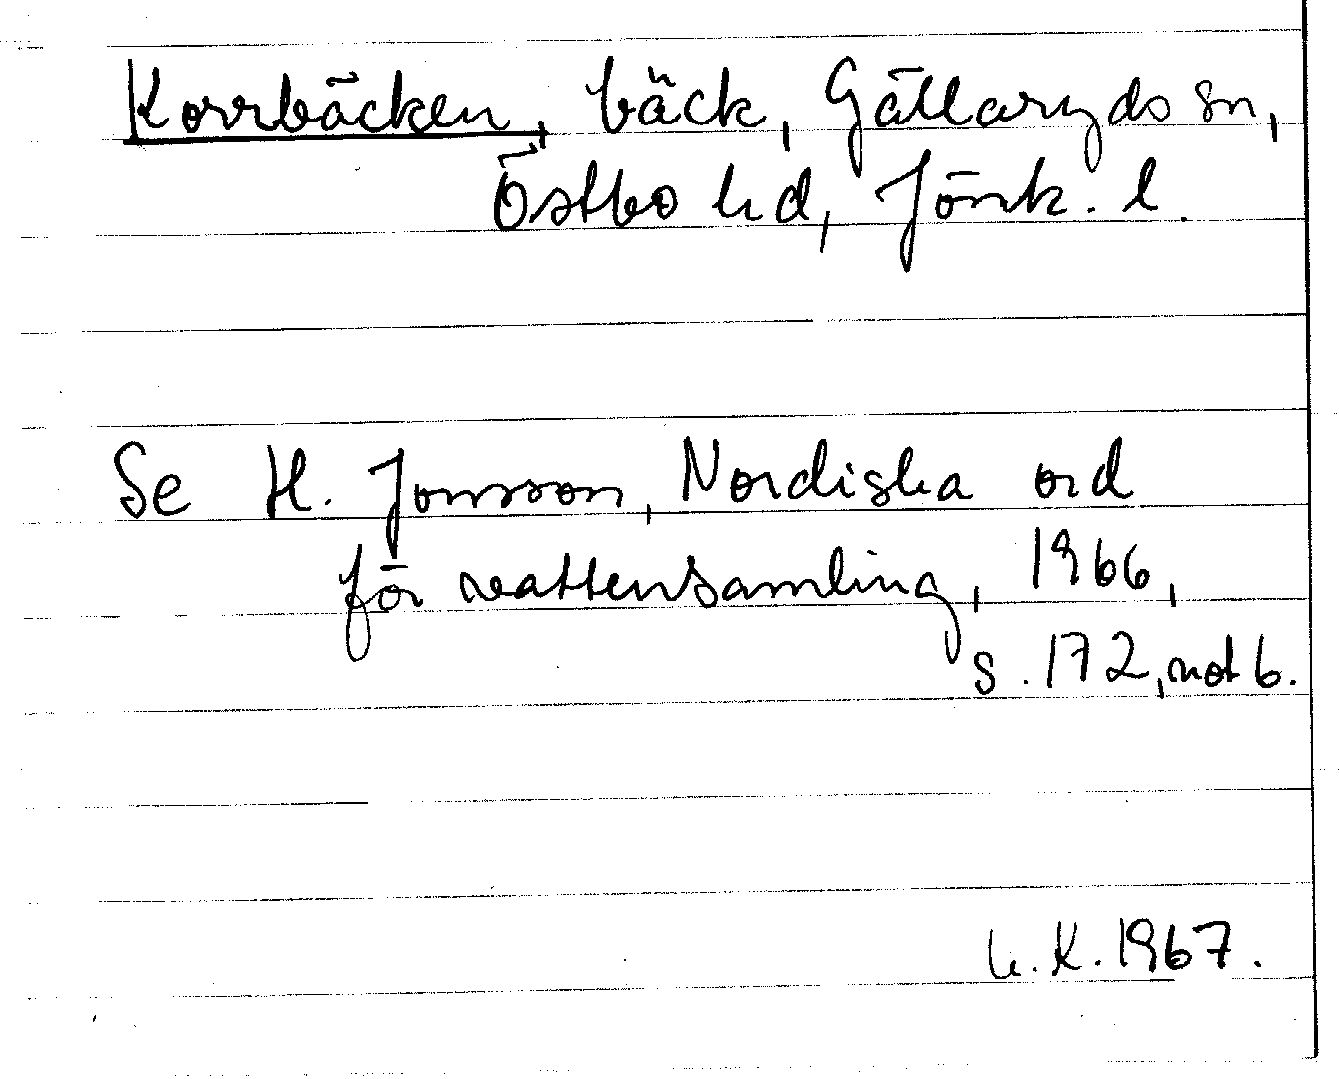 Korrbäcken, bäck, Gällaryds sn,
Östbo hd, Jönk. l.
Se H. Jonsson, Nordiska ord
för vattensamling, 1966,
s. 172, not 6.
h. K. 1967.